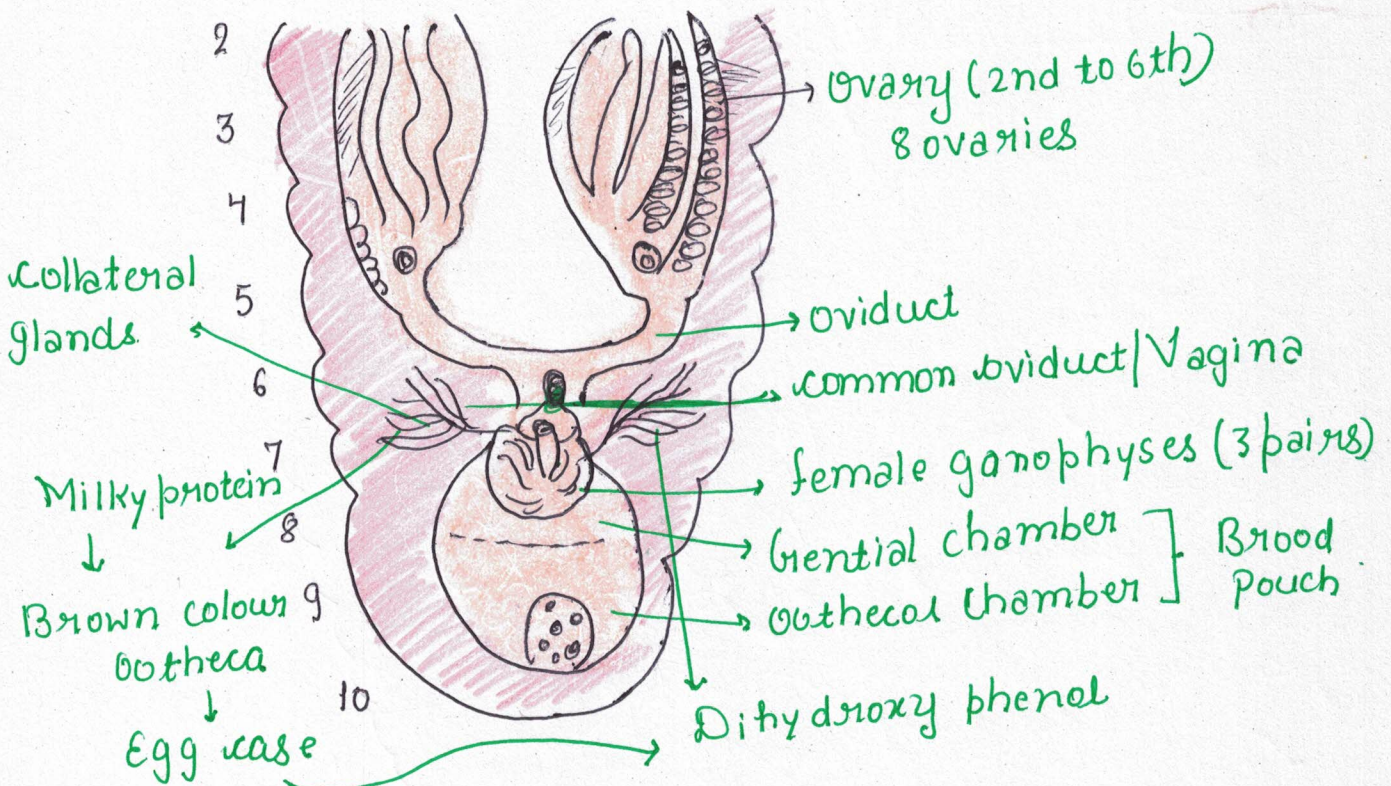 2
3
4
5
6
7
8
9
10
Ovary (2nd to 6th)
8 ovaries
Collateral
glands
oviduct
common oviduct/Vagina
female ganophyses (3 pairs)
Milky protein
Grential chamber
oothecal chamber
Brood
pouch
Brown colour
ootheca
Egg case
Dihydroxy phenol